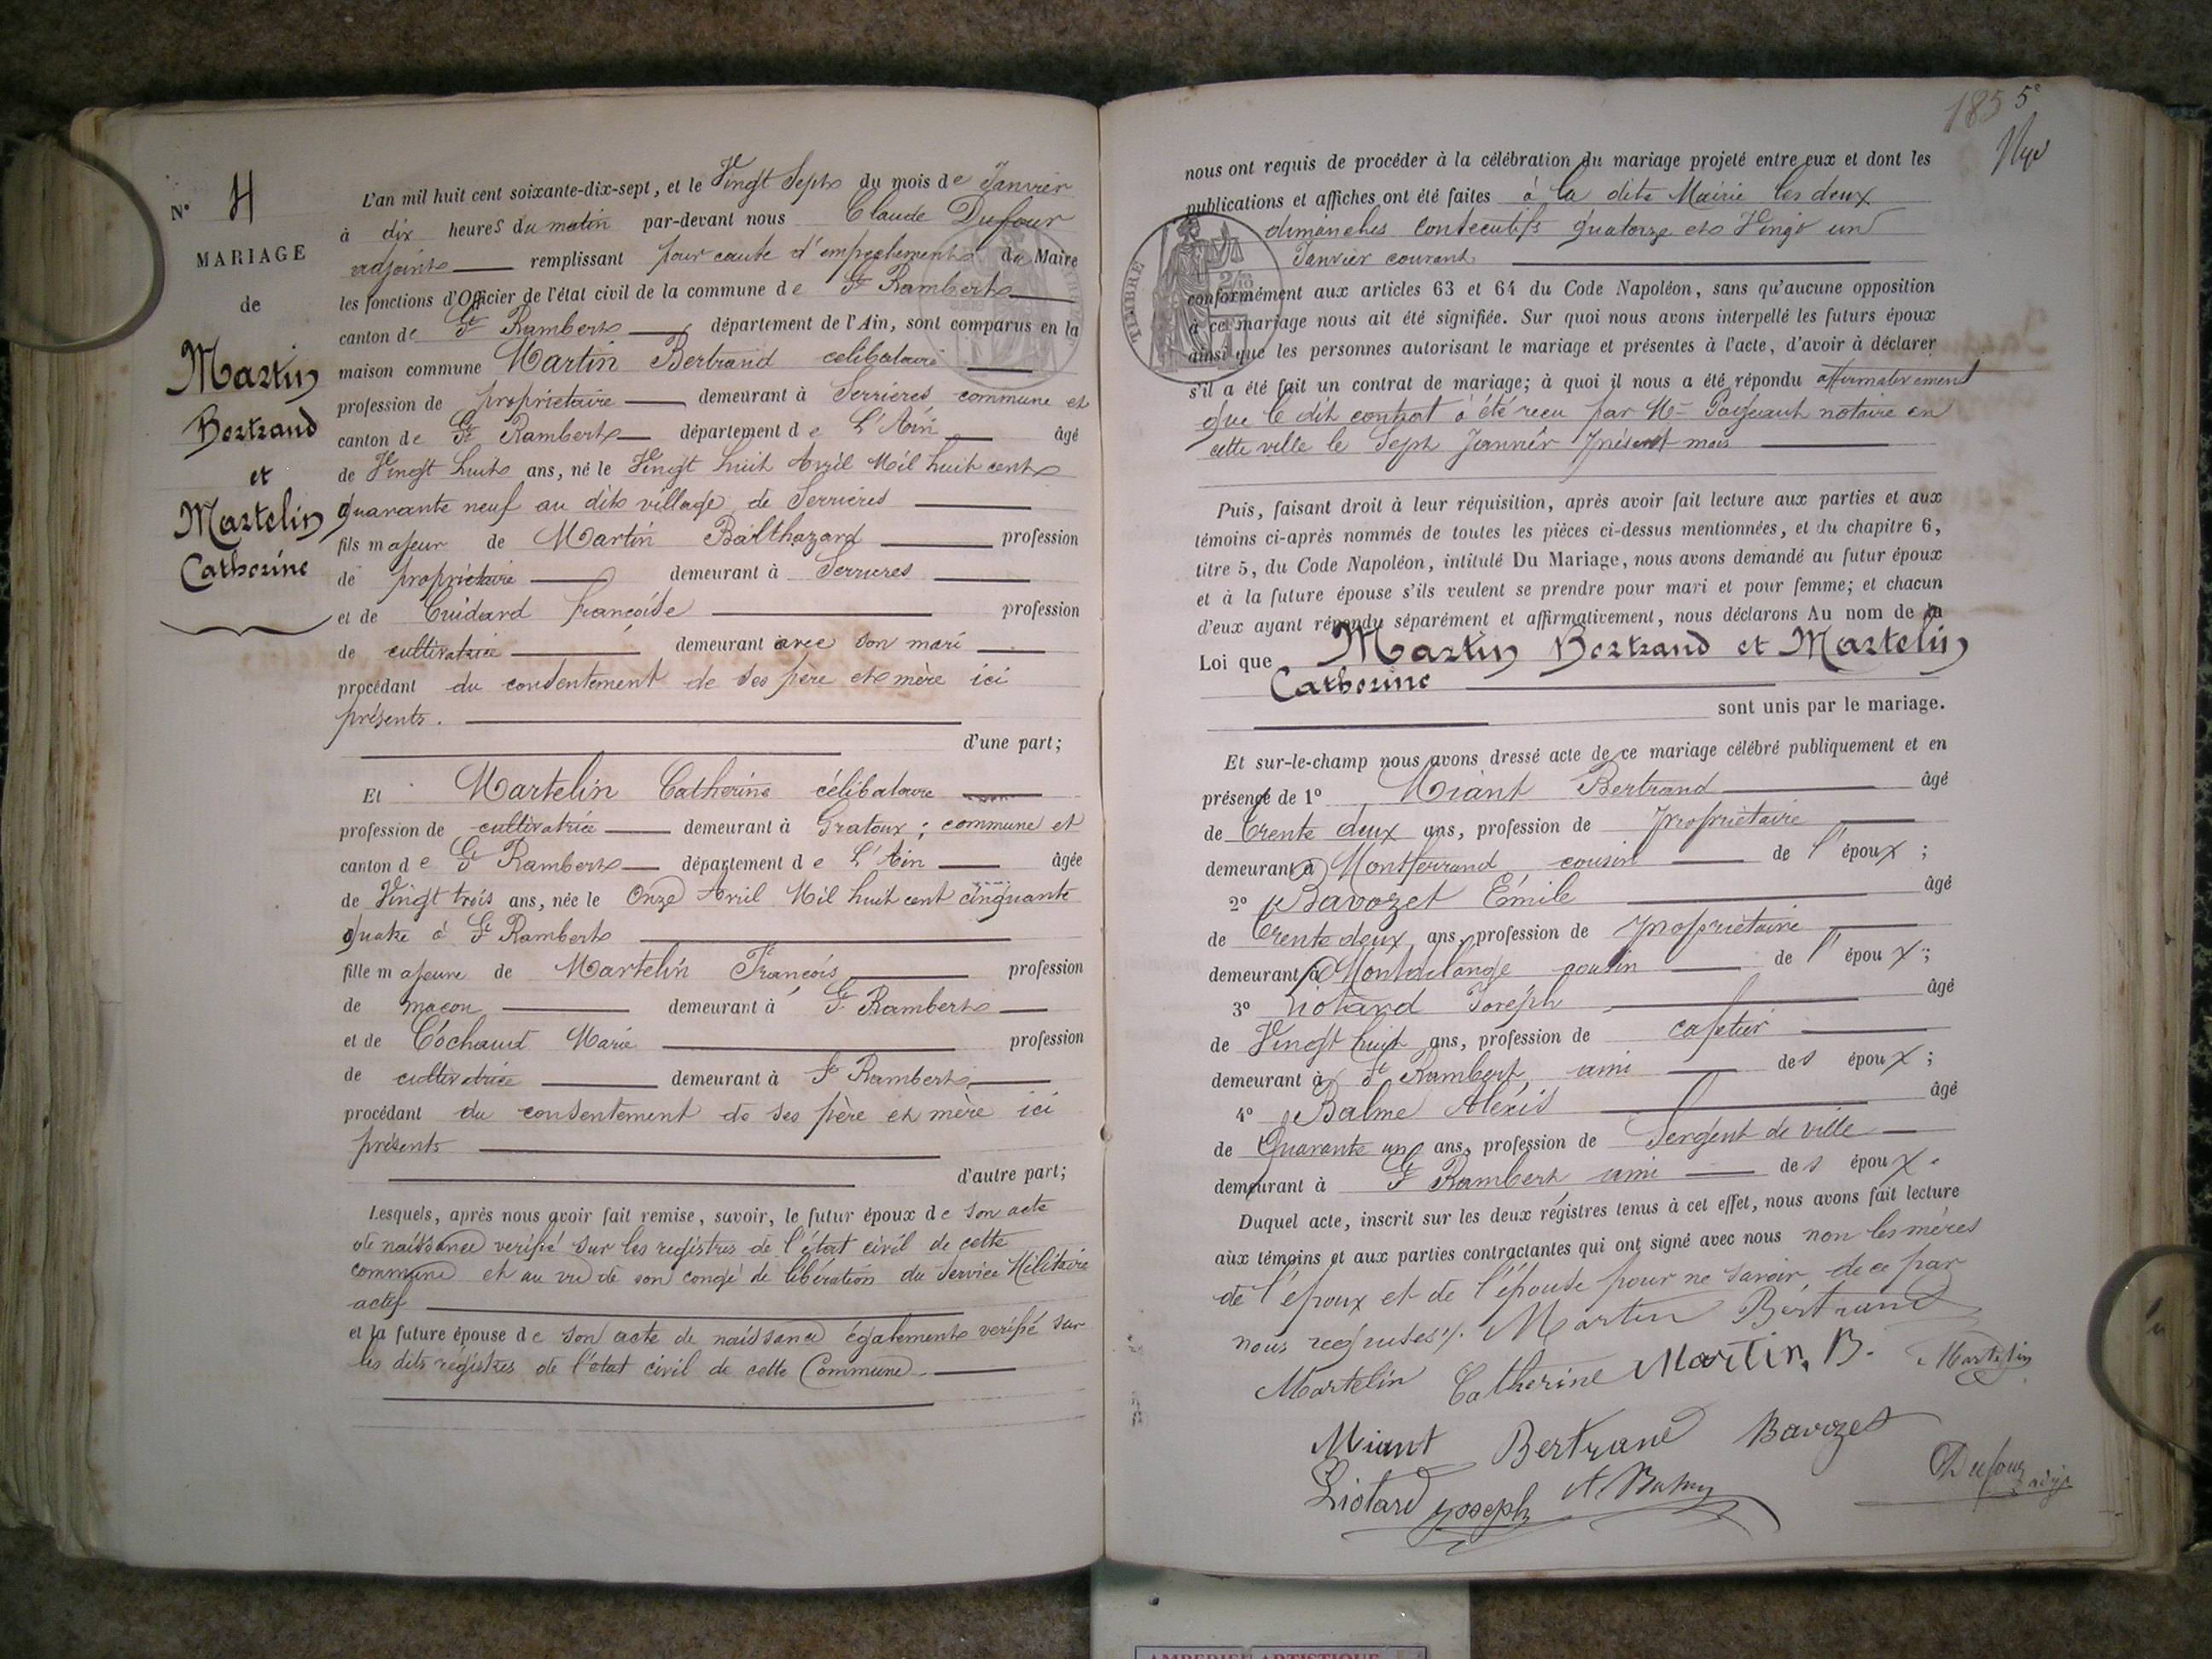 N° 4
MARIAGE
de
Martin
Bertrand
et
Martelin
Catherine
L'an mil huit cent soixante-dix-sept, et le Vingt Sept du mois de Janvier
à dix heures du matin par-devant nous Claude Dufour
adjoint remplissant pour cause d'empechement du Maire
les fonctions d'Officier de l'état civil de la commune de St Rambert
canton de St Rambert département de l'Ain, sont comparus en la
maison commune Martin Bertrand celibataire
profession de propriétaire demeurant à Serrieres commune et
canton de St Rambert département de L'Ain âgé
de Vingt huit ans, né le Vingt huit Avril Mil huit cent
quarante neuf au dit village de Serrieres
fils majeur de Martin Balthazard profession
de propriétaire demeurant à Serrieres
et de Guidard françoise profession
de cultivatrice demeurant avec son mari
procédant du consentement de ses père et mère ici
présents.
d'une part;
Et Martelin Catherine célibataire
profession de cultivatrice demeurant à Gratoux ; commune et
canton de St Rambert département de L'Ain âgée
de Vingt trois ans, née le Onze Avril Mil huit cent cinquante
quatre à St Rambert
fille majeure de Martelin François profession
de maçon demeurant à St Rambert
et de Cochaud Marie profession
de cultivatrice demeurant à St Rambert
procédant du consentement de ses père et mère ici
présents
d'autre part;
Lesquels, après nous avoir fait remise, savoir, le futur époux de son acte
de naissance verifié sur les registres de l'état civil de cette
commune et au vu de son congé de libération du Service Militaire
actif
et la future épouse de son acte de naissance également verifié sur
les dits régistres de l'état civil de cette Commune
185 5e
nous ont requis de procéder à la célébration du mariage projeté entre eux et dont les
publications et affiches ont été faites à la dite Mairie les deux
dimanches consecutifs quatorze et Vingt un
Janvier courant
TIMBRE
conformément aux articles 63 et 64 du Code Napoléon, sans qu'aucune opposition
à ce mariage nous ait été signifiée. Sur quoi nous avons interpellé les futurs époux
ainsi que les personnes autorisant le mariage et présentes à l'acte, d'avoir à déclarer
s'il a été fait un contrat de mariage; à quoi il nous a été répondu affirmativement
que le dit contrat à été reçu par Me notaire en
cette ville le Sept Janvier présent mois
Puis, faisant droit à leur réquisition, après avoir fait lecture aux parties et aux
témoins ci-après nommés de toutes les pièces ci-dessus mentionnées, et du chapitre 6,
titre 5, du Code Napoléon, intitulé Du Mariage, nous avons demandé au futur époux
et à la future épouse s'ils veulent se prendre pour mari et pour femme; et chacun
d'eux ayant répondu séparément et affirmativement, nous déclarons Au nom de la
Loi que Martin Bertrand et Martelin
Catherine
sont unis par le mariage.
Et sur-le-champ nous avons dressé acte de ce mariage célébré publiquement et en
présence de 1° Miant Bertrand âgé
de trente deux ans, profession de propriétaire
demeurant à Montferrand cousin de l'époux ;
2° Bavozet Émile âgé
de trente deux ans, profession de propriétaire
demeurant à cousin de l'époux ;
3° Liotard Joseph âgé
de Vingt huit ans, profession de cafetier
demeurant à St Rambert ami des époux ;
4° Balme Aléxis âgé
de Quarante un ans, profession de Sergent de ville
demeurant à St Rambert ami des époux.
Duquel acte, inscrit sur les deux régistres tenus à cet effet, nous avons fait lecture
aux témoins et aux parties contractantes qui ont signé avec nous non les mères
de l'époux et de l'épouse pour ne savoir, de ce par
nous requises Martin Bertrand
Martelin Catherine Martin. B. Martelin
Miant Bertrand Bavozet
Liotard Joseph Dufour adj
AMBERIEU ARTISTIQUE